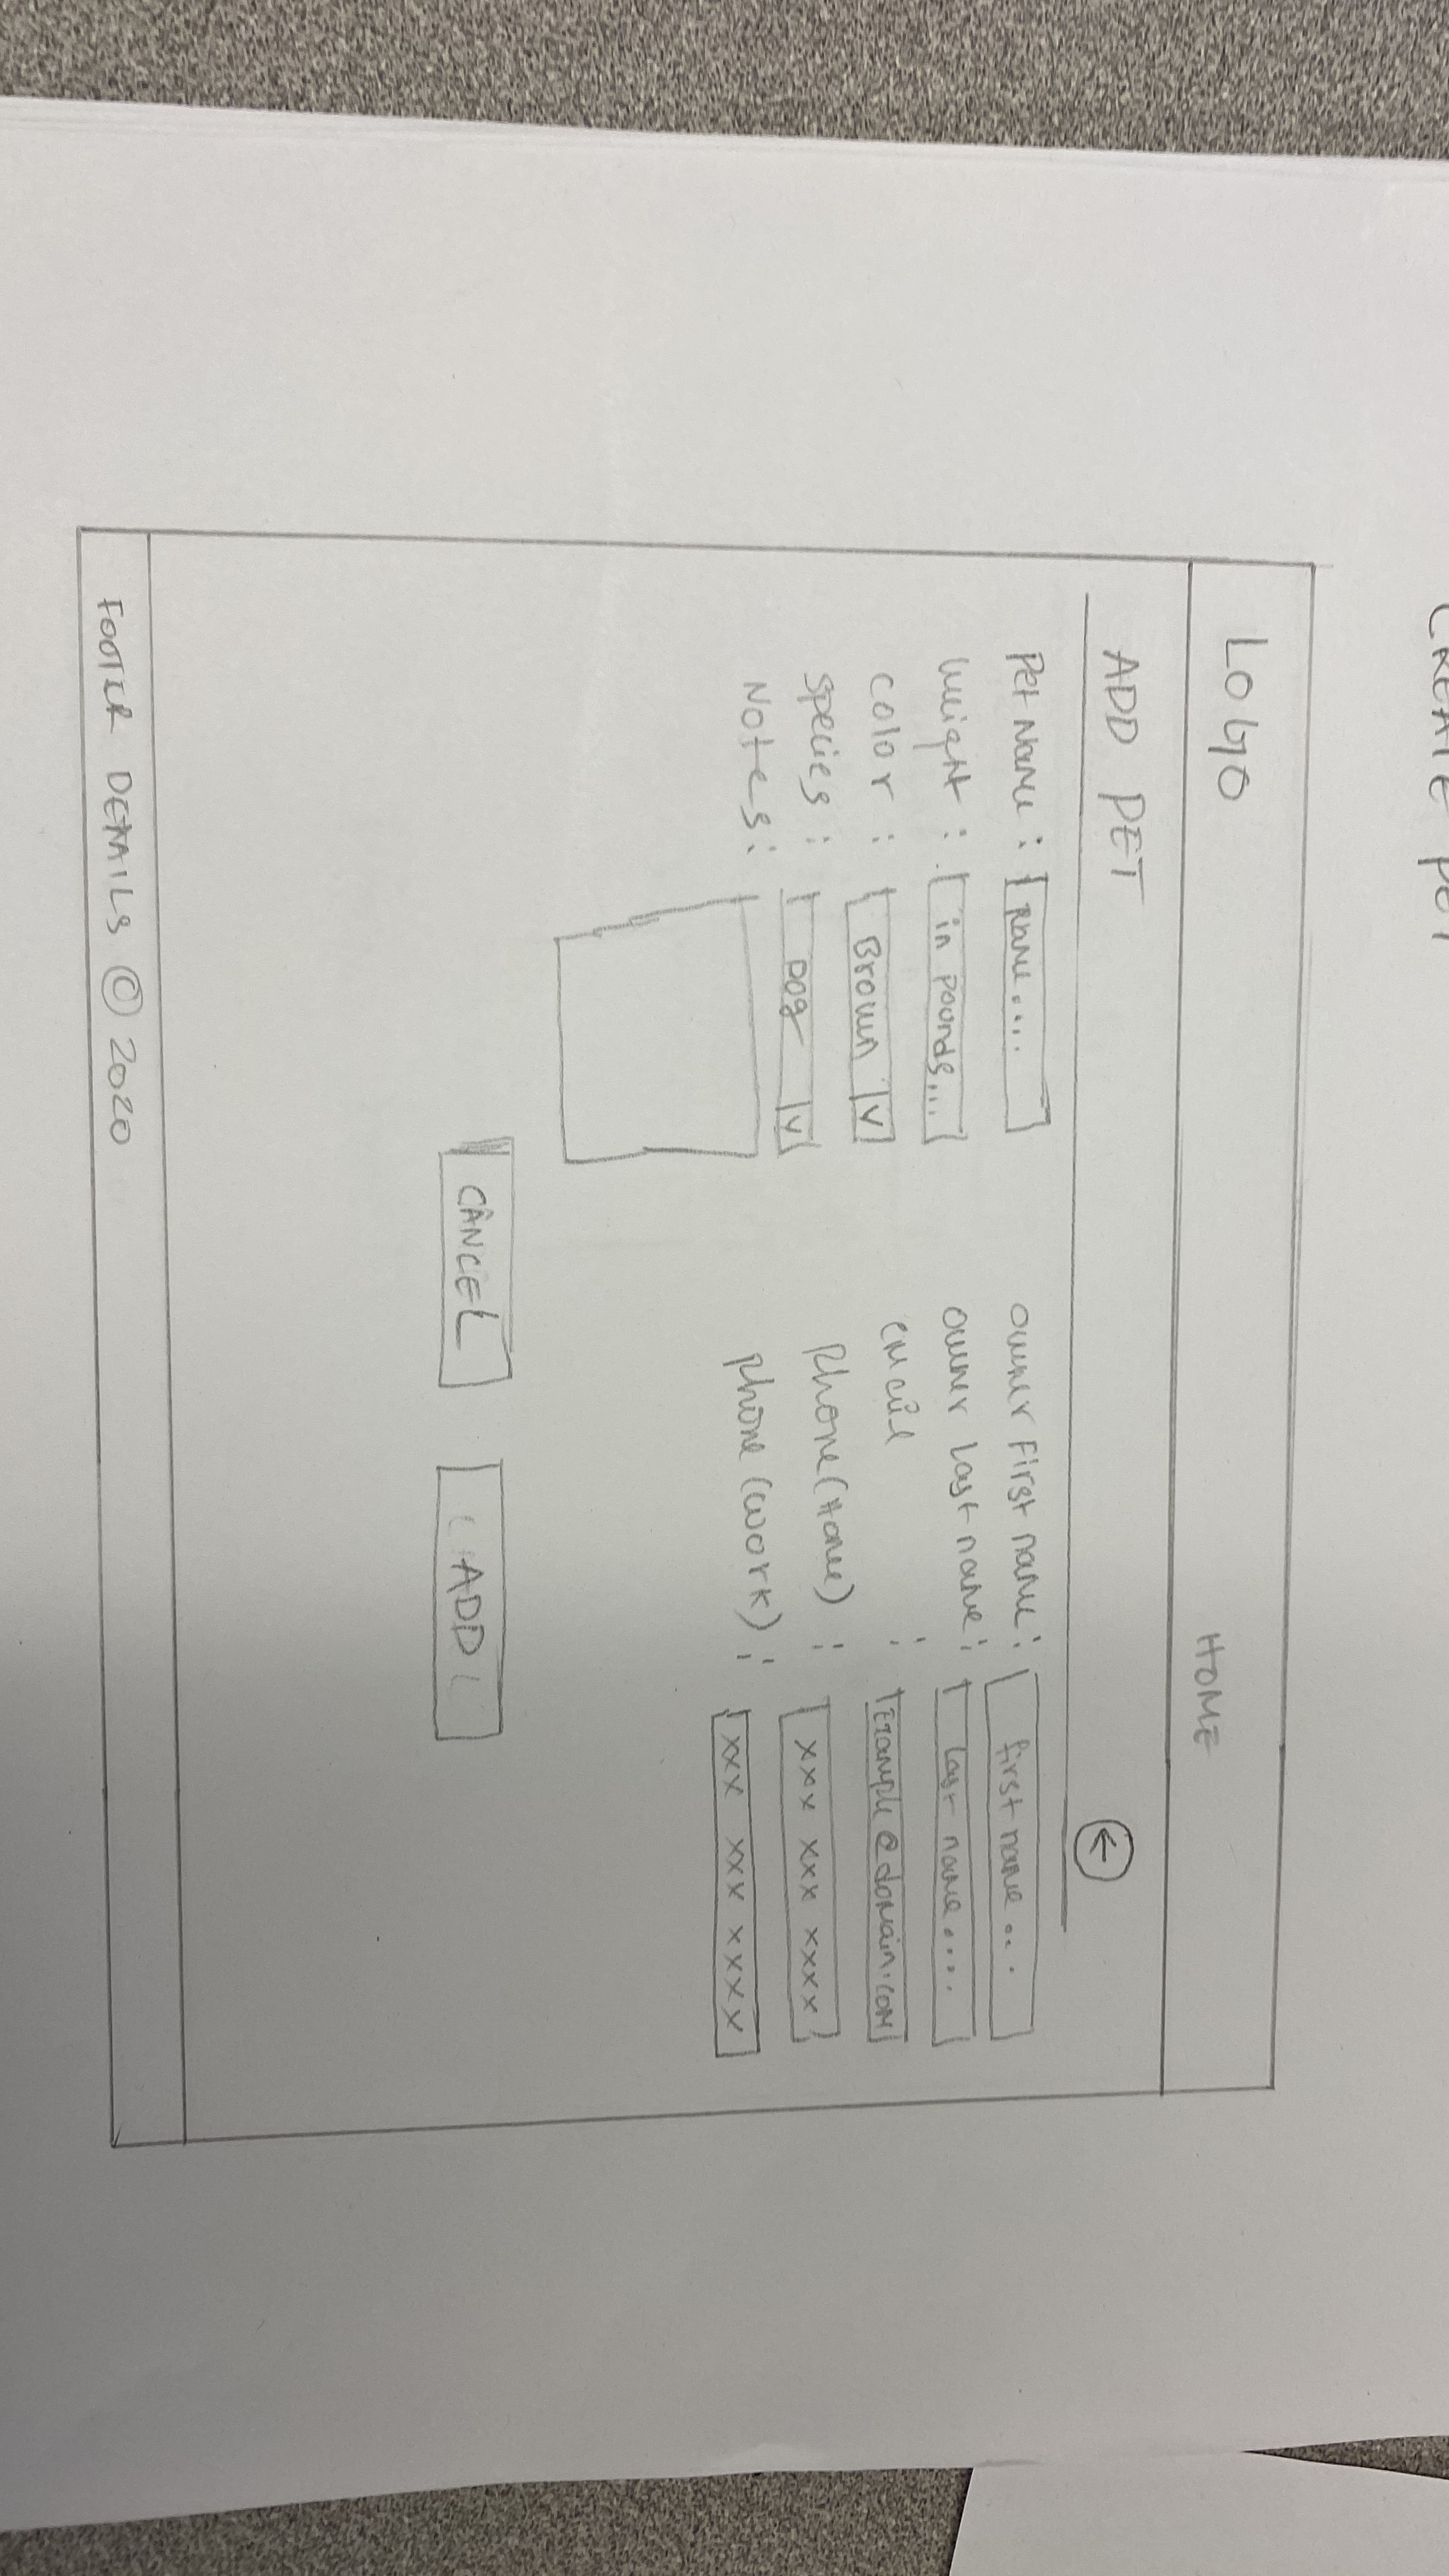 CREATE PET
LOGO HOME
ADD PET ←
Pet Name : Name....
Weight : in pounds....
Color : Brown V
Species : Dog V
Notes :
Owner First name : first name...
Owner Last name : last name....
Email : Example@domain.com
Phone (Home) : xxx xxx xxxx
Phone (Work) : xxx xxx xxxx
CANCEL ADD
FOOTER DETAILS © 2020